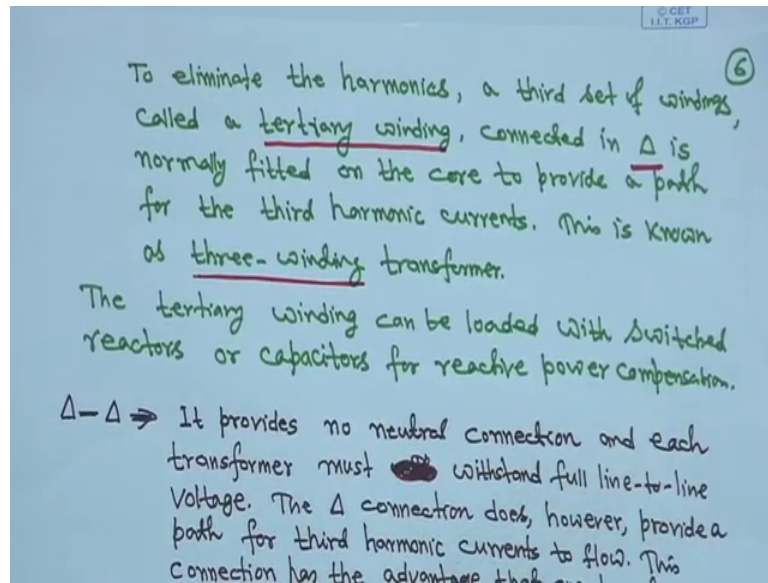 © CET
I.I.T. KGP
6
To eliminate the harmonics, a third set of windings,
called a tertiary winding, connected in Δ is
normally fitted on the core to provide a path
for the third harmonic currents. This is known
as three-winding transformer.
The tertiary winding can be loaded with switched
reactors or capacitors for reactive power compensation.
Δ-Δ ⇒ It provides no neutral connection and each
transformer must withstand full line-to-line
voltage. The Δ connection does, however, provide a
path for third harmonic currents to flow. This
connection has the advantage that